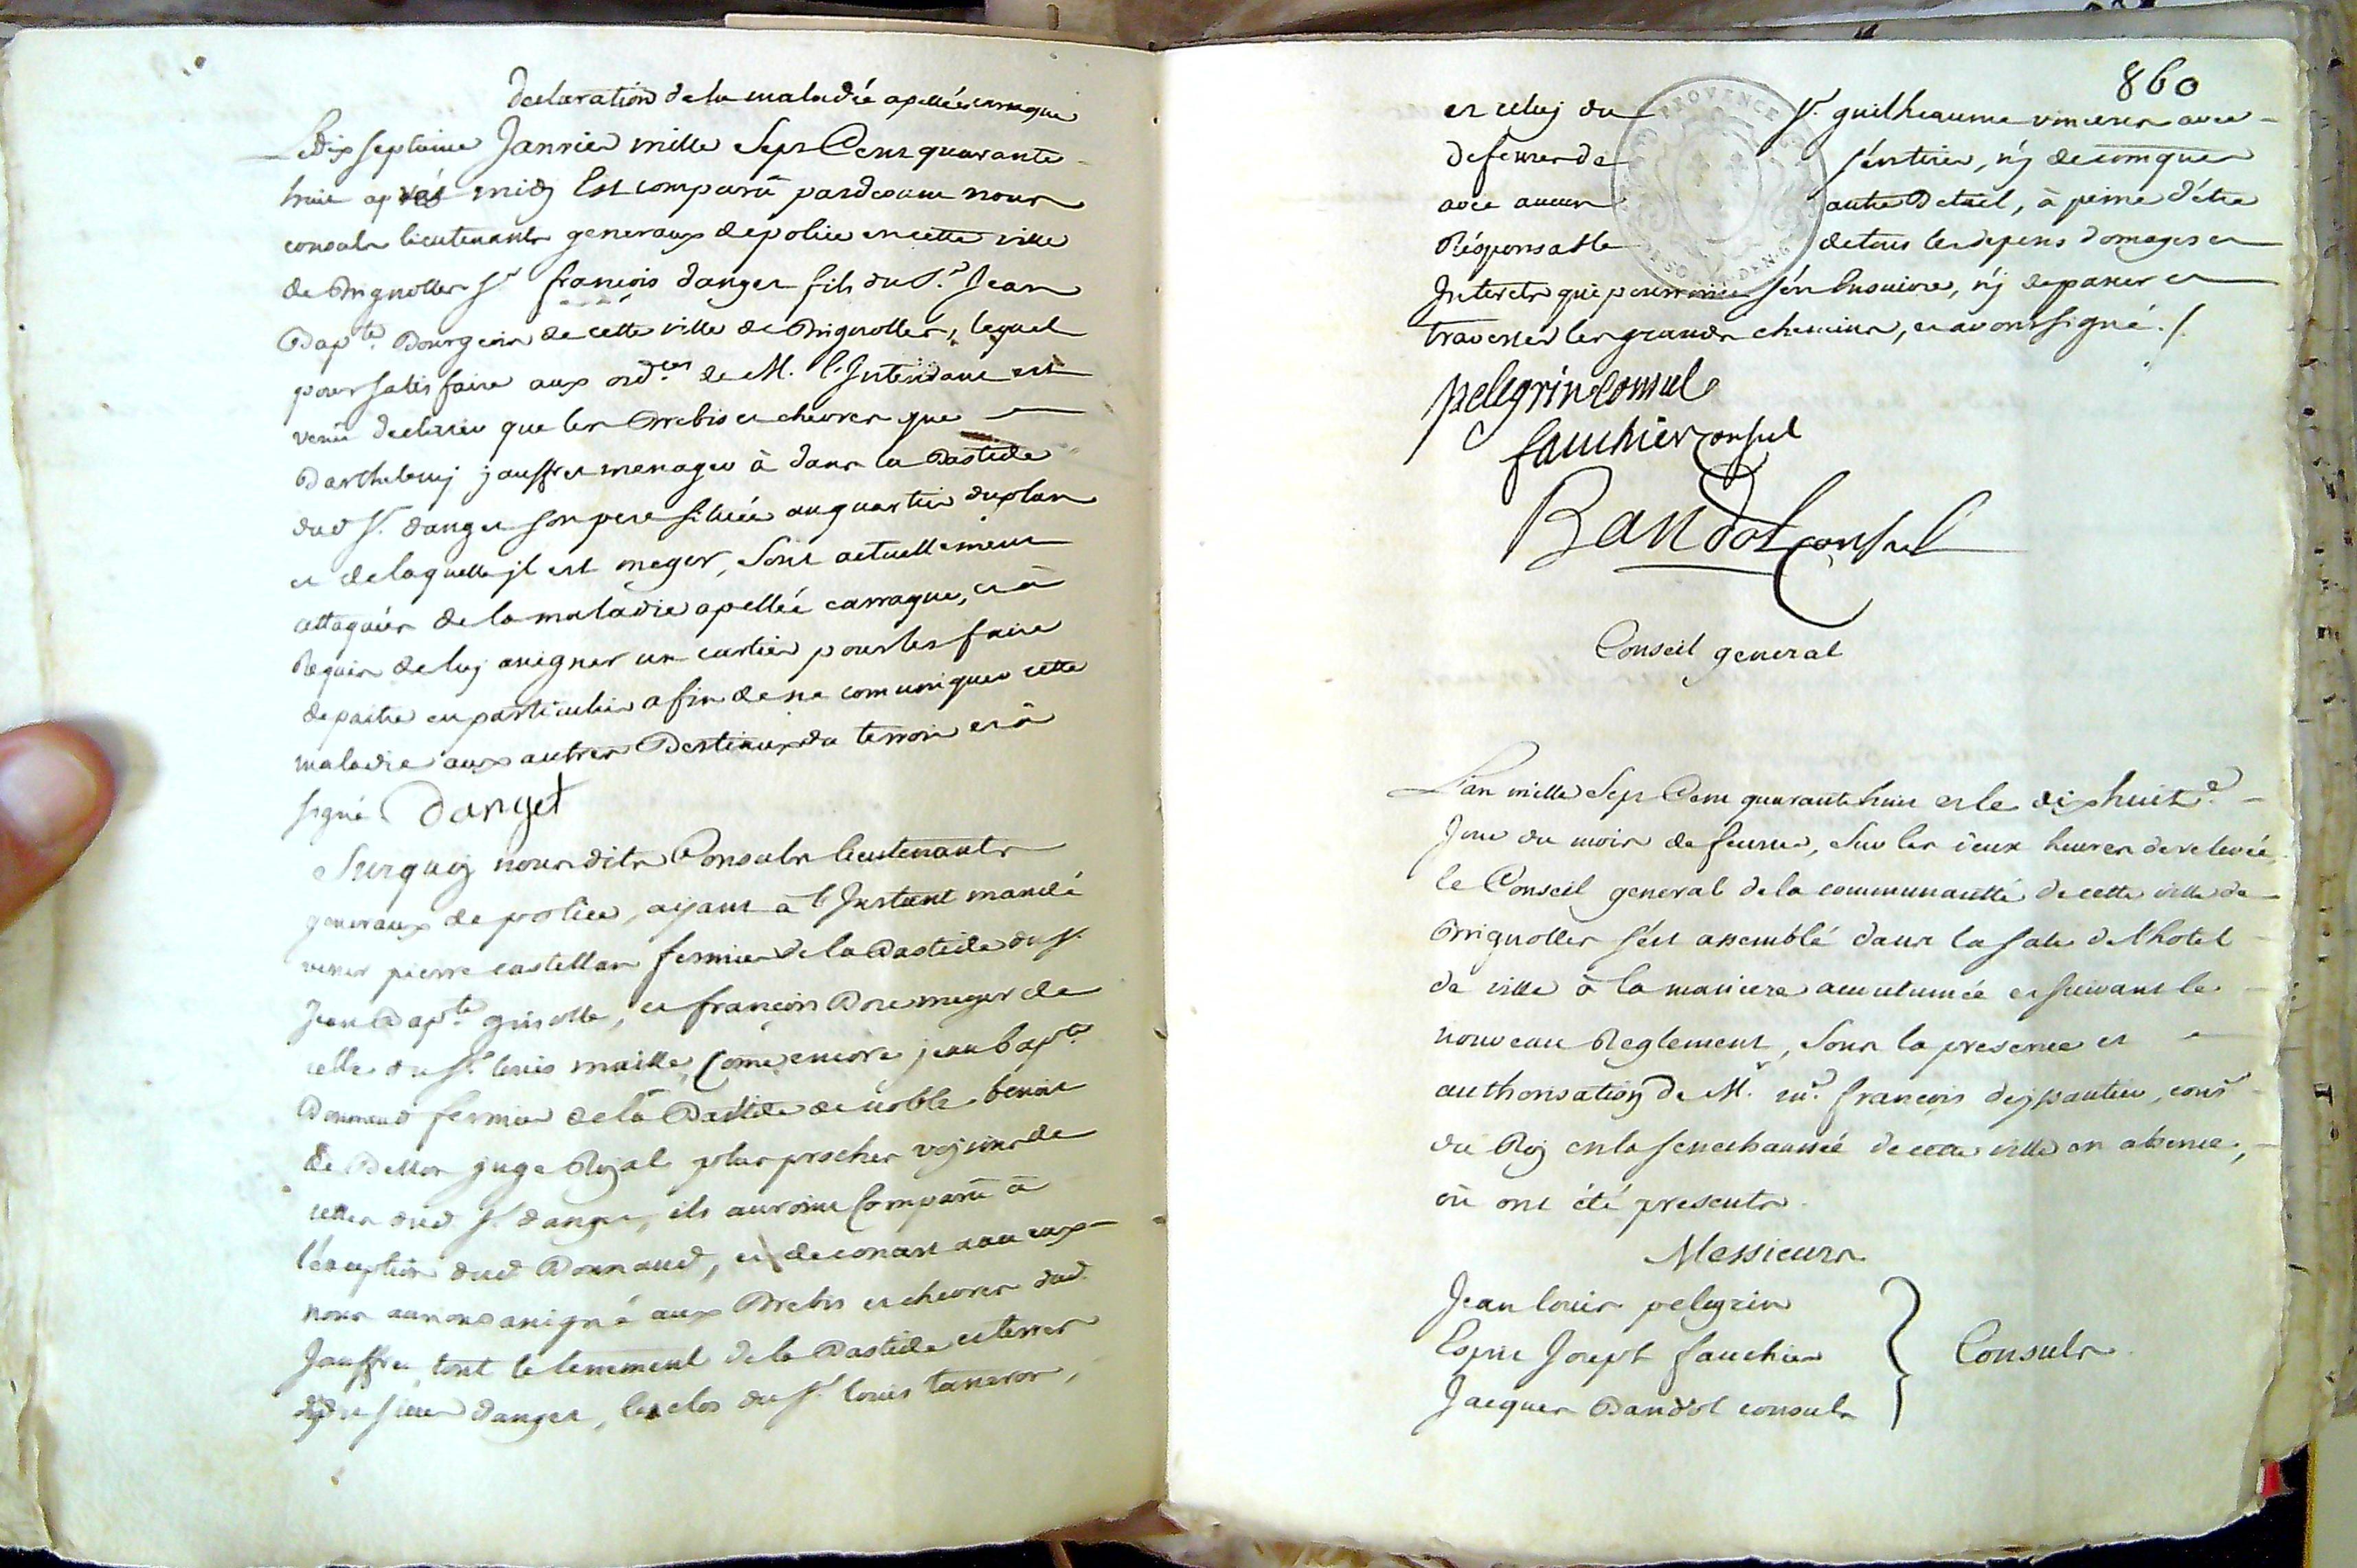 declaration de la maladie apellée carraque
Le dix septieme Janvier mille Sept Cent quarante
huit après midy Est comparû pardevant nous
consuls lieutenants generaux de police en cette ville
de Brignolles Sr. françois danget fils du Sr. Jean
Bapte. Bourgeois de cette ville de Brignolles, lequel
pour satisfaire aux ordces de M. l'Intendant est
venû declarer que les Brebis et chevres que
Barthelemy jauffret menager à dans la Bastide
dud Sr. danget son pere située au quartier du plan
et de laquelle jl est meger, Sont actuellement
attaquées de la maladie apellée carraque, et à
Requis de luy assigner un cartier pour les faire
depaitre en particulier afin de ne comuniquer cette
maladie aux autres Bestiaux du terroir et à
signé Danget
Surquoy nous dits Consuls lieutenants
generaux de police, ayant à l'Instant mandé
venir pierre castellan fermier de la Bastide du Sr.
Jean Bapte. grisolle, et françois Bore meger de
celle du Sr. louis maille, Come encore jean bapte
Bonnaud fermier de la Bastide de noble benoit
de Bellon juge Royal plus proches voysins de
celles dud. Sr. danget, ils auroint Comparû à
l'éxeption dud Bonnaud, et de concert avec eux
nous aurions assigné aux Brebis et chevres dud.
Jauffret tout le tenement de la Bastide et terres
dud sieur danget, les clos du Sr. louis taneron,
860
et celuy du Sr. guilheaume vincens avec
defense de s'en tirer, n'y de comquer
avec aucun autre Betail, à peine d'étre
Résponsable de tous les depens domages et
Interets qui pourroint s'en Ensuivre, n'y de passer et
traverser les grands chemins, et avons signé. /.
pelegrin consul
fauchier consul
Bandol consul
Conseil general
L'an mille Sept Cent quarante huit et le dixhuite.
Jour du mois de fevrier, Sur les deux heures de relevée,
le Conseil general de la communautté de cette ville de
Brignolles s'ést assemblé dans la sale de l'hotel
de ville à la maniere accoutumée et suivant le
nouveau Reglement, Sous la presence et
authorisation de M. me. françois dejpantier, consr
du Roy en la senechaussée de cette ville en absence,
où ont été presents.
Messieurs
Jean louis pelegrin
Esprit Joseph fauchier
Jacques Bandol consuls
Consuls